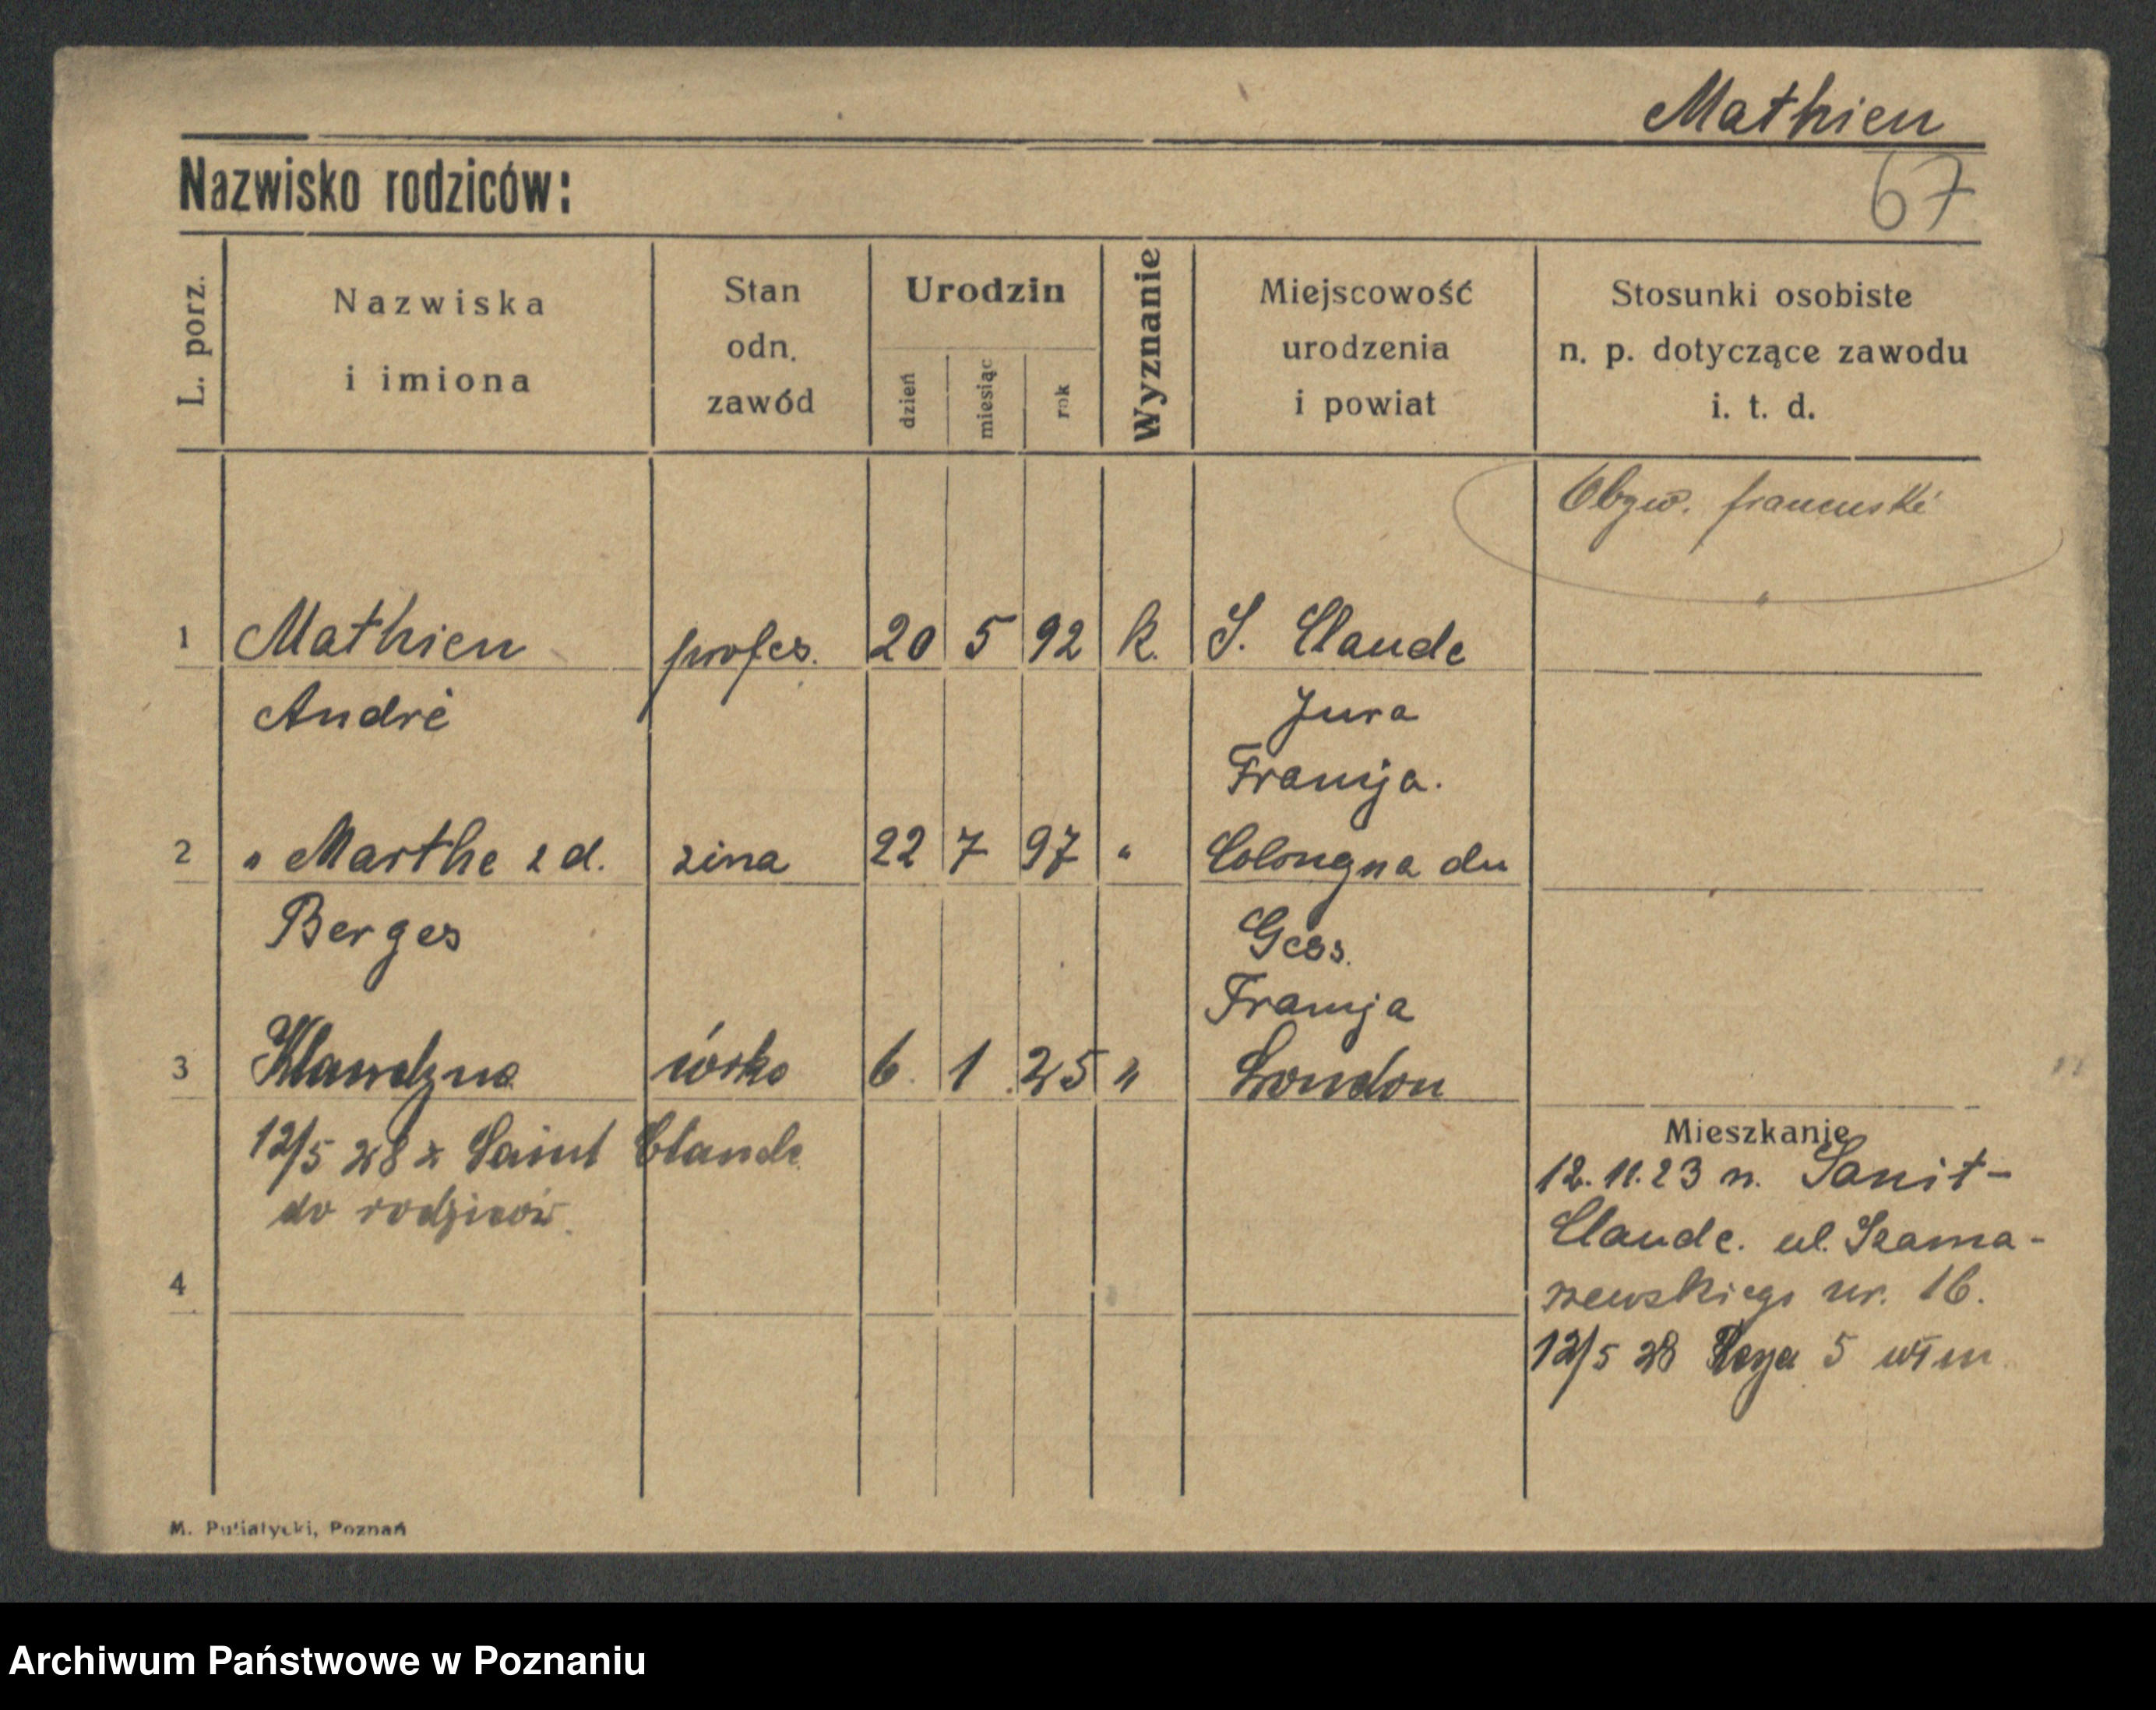 Mathieu
Nazwisko rodziców:
67
L. porz.
Nazwiska
i imiona
Stan
odn.
zawód
Urodzin
dzień
miesiąc
rok
Wyznanie
Miejscowość
urodzenia
i powiat
Stosunki osobiste
n. p. dotyczące zawodu
i. t. d.
Obyw. francuski
"
1 Mathieu profes. 20 5 92 k. S. Claude
André Jura
Francja.
2 " Marthe z d. żona 22 7 97 " Colongna du
Berges Gess.
Francja
3 Klaudyna córka 6. 1 25 " London
12/5 28 z Saint Claude
do rodziców.
4
Mieszkanie
12.11.23 n. Sanit-
Claude. ul. Szama-
rzewskiego nr. 16.
12/5 28 Reya 5 wł m
M. Putiatycki, Poznań
Archiwum Państwowe w Poznaniu